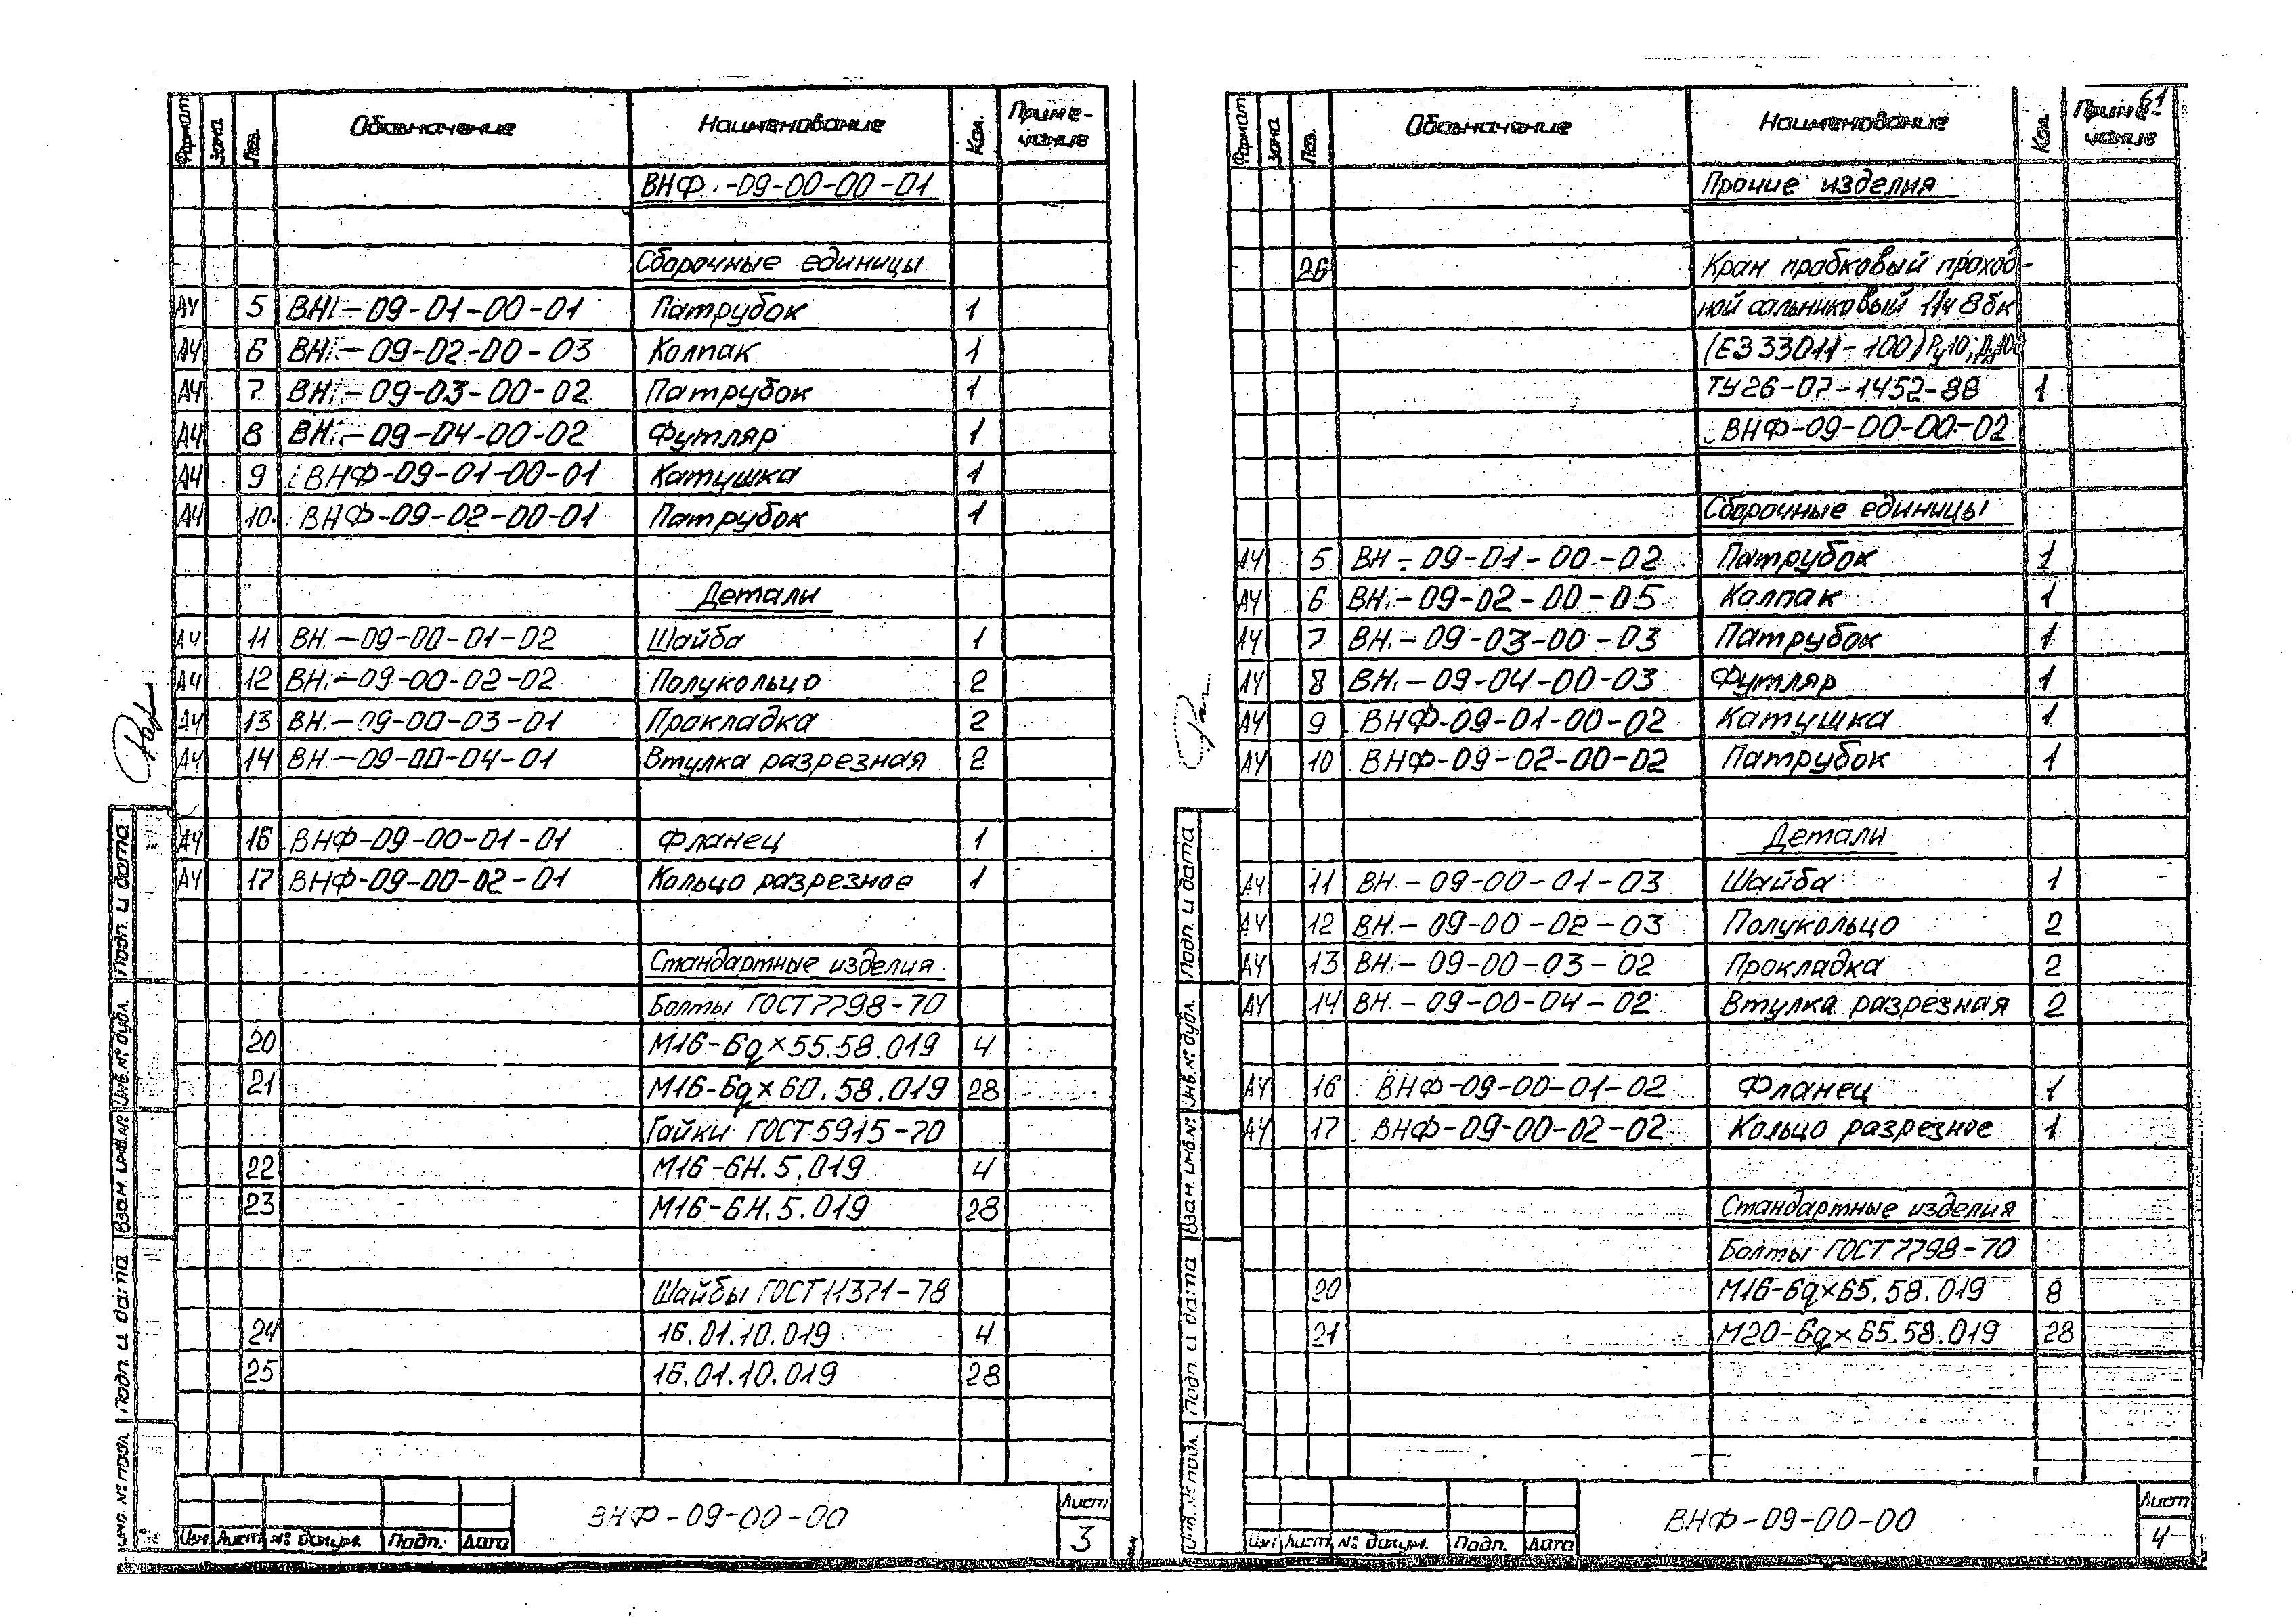 Формат Зона Поз. Обозначение Наименование Кол. Приме-
чание
ВНФ-09-00-00-01
Сборочные единицы
А4 5 ВН-09-01-00-01 Патрубок 1
А4 6 ВН-09-02-00-03 Колпак 1
А4 7 ВН-09-03-00-02 Патрубок 1
А4 8 ВН-09-04-00-02 Футляр 1
А4 9 ВНФ-09-01-00-01 Катушка 1
А4 10 ВНФ-09-02-00-01 Патрубок 1
Детали
А4 11 ВН-09-00-01-02 Шайба 1
А4 12 ВН-09-00-02-02 Полукольцо 2
А4 13 ВН-09-00-03-01 Прокладка 2
А4 14 ВН-09-00-04-01 Втулка разрезная 2
А4 16 ВНФ-09-00-01-01 Фланец 1
А4 17 ВНФ-09-00-02-01 Кольцо разрезное 1
Стандартные изделия
Болты ГОСТ 7798-70
20 М16-6g×55.58.019 4
21 М16-6g×60.58.019 28
Гайки ГОСТ 5915-70
22 М16-6Н.5.019 4
23 М16-6Н.5.019 28
Шайбы ГОСТ 11371-78
24 16.01.10.019 4
25 16.01.10.019 28
Инв. № подл. Подп. и дата Взам. инв. № Инв. № дубл. Подп. и дата
Изм Лист № докум. Подп. Дата
ВНФ-09-00-00
Лист
3
61
Формат Зона Поз. Обозначение Наименование Кол. Приме-
чание
Прочие изделия
26 Кран пробковый проход-
ной сальниковый 11ч8бк
(ЕЗ 33011-100) Ру10; Ду100
ТУ26-07-1452-88 1
ВНФ-09-00-00-02
Сборочные единицы
А4 5 ВН-09-01-00-02 Патрубок 1
А4 6 ВН-09-02-00-05 Колпак 1
А4 7 ВН-09-03-00-03 Патрубок 1
А4 8 ВН-09-04-00-03 Футляр 1
А4 9 ВНФ-09-01-00-02 Катушка 1
А4 10 ВНФ-09-02-00-02 Патрубок 1
Детали
А4 11 ВН-09-00-01-03 Шайба 1
А4 12 ВН-09-00-02-03 Полукольцо 2
А4 13 ВН-09-00-03-02 Прокладка 2
А4 14 ВН-09-00-04-02 Втулка разрезная 2
А4 16 ВНФ-09-00-01-02 Фланец 1
А4 17 ВНФ-09-00-02-02 Кольцо разрезное 1
Стандартные изделия
Болты ГОСТ 7798-70
20 М16-6g×65.58.019 8
21 М20-6g×65.58.019 28
Инв. № подл. Подп. и дата Взам. инв. № Инв. № дубл. Подп. и дата
Изм Лист № докум. Подп. Дата
ВНФ-09-00-00
Лист
4